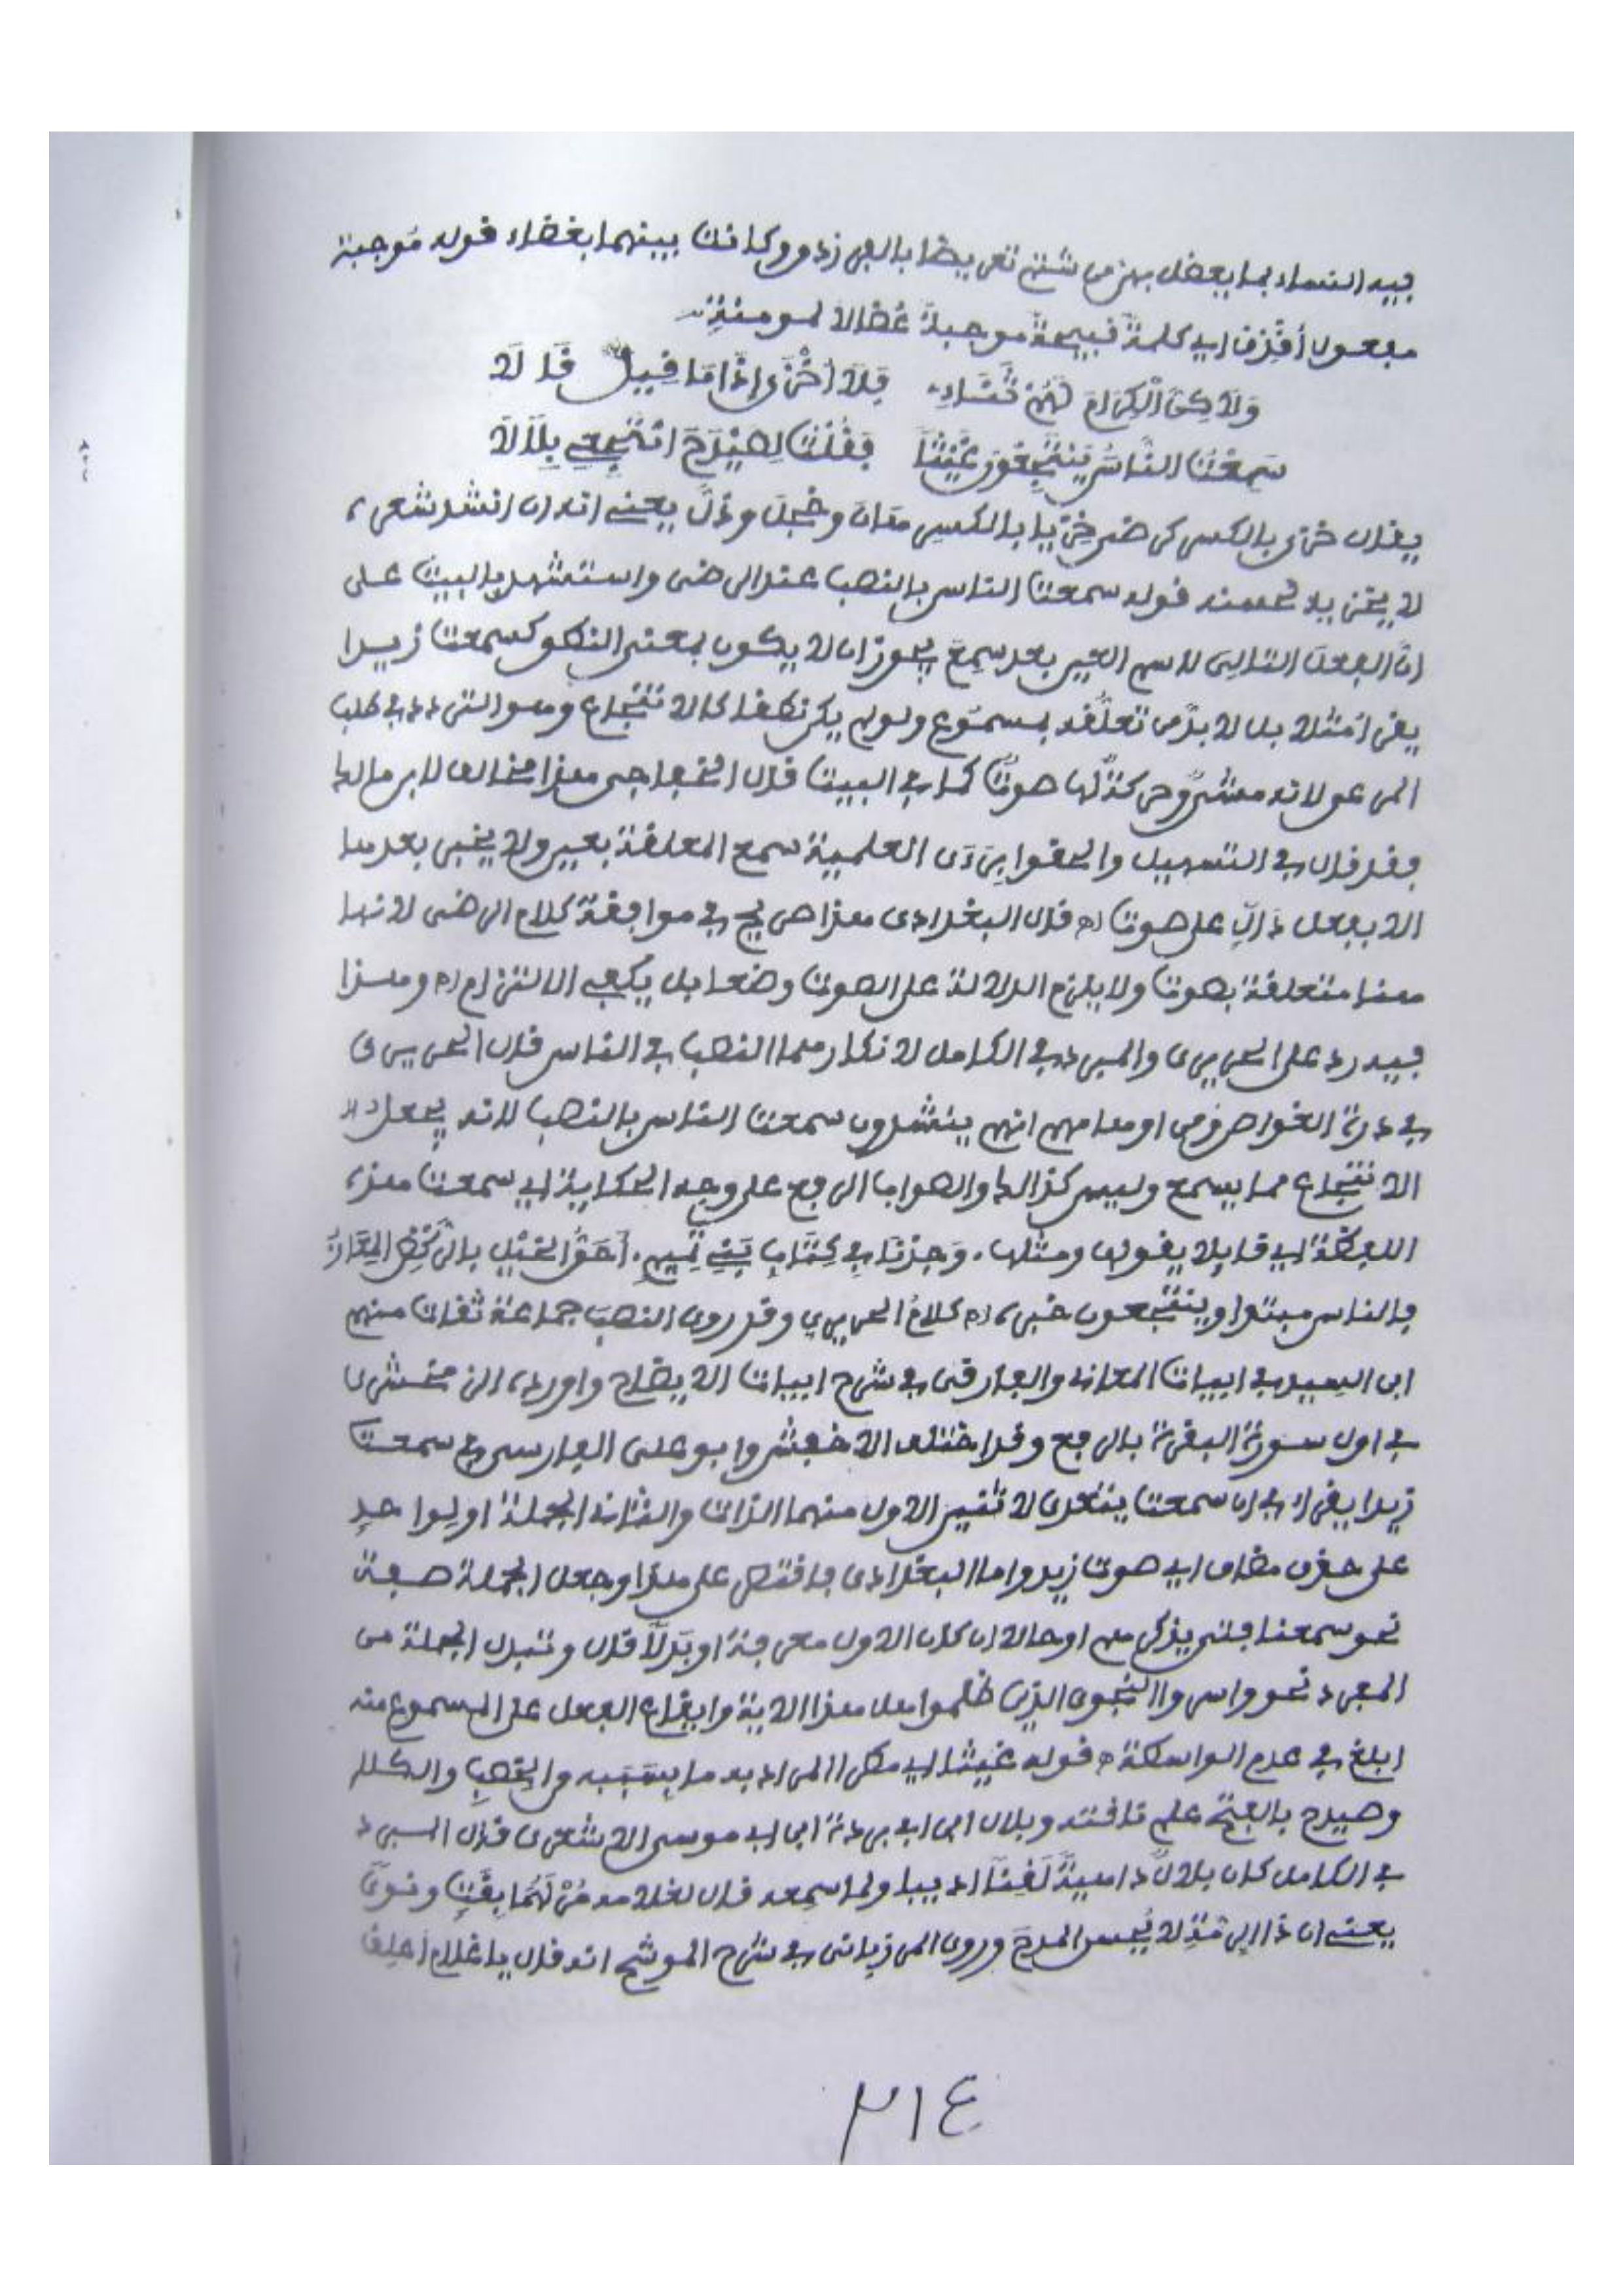 فيه النساء بما يفضل بهن من شتم تعريضا بالفرزدق وكانت بينهما بغضاء قوله موجبة
مفعول أقذف اي كلمةً قبيحةً موجبةً عُضالا لمومنةٍ
وَلَاكِنَّ الْكِرَامَ لَهُمْ ثَنَاءِي فَلَا أَخْزَى إِذَا مَا قِيلَ قَا لَا
سَمِعْتُ النَّاسَ يَنْتَجِعُونَ غَيْثًا فَقُلْتُ لِصَيْدَحَ انْتَجِعِي بِلَالَا
يقال خزى بالكسر كرضي خِزيا بالكسر هان وخجل وذلّ يعني انه ان انشد شعره
لا يخزى به قوله سمعت الناس بالنصب عند الرضى واستشهد بالبيت على
انّ الفعل التالى لاسم العين بعد سمِعَ يجوز ان لا يكون بمعنى النطق كسمعت زيدا
يقرا مثلا بل لا بدّ من تعلّقه بمسموع ولو لم يكن نطقا كالانتجاع وهو التردد في طلب
المرعى لانه مشيٌ وحركةٌ لها صوتٌ كما في البيت قال الخفاجى هذا مخالف لابن مالك
فقد قال في التسهيل والحقوا برَأى العلمية سمع المعلقة بعين ولا يخبر بعدها
الا بفعل دَالٍّ على صوت اه قال البغدادى هذا صريح في موافقة كلام الرضى لانها
هنا متعلقة بصوت ولا يلزم الدلالة على الصوت وضعا بل يكفي الالتزام اه وهذا
فيه رد على الحريرى والمبرد في الكامل لانكارهما النصب في الناس قال الحريرى
في درة الغواص ومن اوهامهم انهم ينشدون سمعت الناس بالنصب لانه يجعل
الانتجاع مما يسمع وليس كذالك والصواب الرفع على وجه الحكاية اي سمعت هذه
اللفظة اي قايلا يقول ومثله . وَجَدْنَا فِي كِتَابِ بَنِي تَمِيمٍ . أَحَقُّ الخَيْلِ بِالرَّكْضِ المِعَارُ
فالناس مبتدا وينتجعون خبره اه كلامُ الحريري وقد روى النصبَ جماعة ثقات منهم
ابن السيد في ابيات المعاني والفارقى في شرح ابيات الايضاح واورده الزمخشرى
في اول سورة البقرة بالرفع وقد اختلف الاخفش وابو على الفارسى في سمعت
زيدا يقرا في ان سمعت يتعدى لاثنين الاول منهما الذات والثانى الجملة او لواحد
على حذف مضاف اي صوت زيد واما البغدادى فاقتصر على هذا وجعل الجملة صفة
نحو سمعنا فتى يذكرهم او حالا ان كان الاول معرفة او بَدَلا قال وتبدل الجملة من
المفرد نحو واسروا النجوى الذين ظلموا هل هذا الاية وايقاع الفعل على المسموع منه
ابلغ في عدم الواسطة اه قوله غيثا اي مطرا المراد به ما يتسبّب به من الخصب والكلا
وصيدح بالفتح علم ناقته وبلال ابن ابي بردة ابن ابي موسى الاشعرى قال المبرد
في الكامل كان بلالٌ داهيةً لَقِنًا اديبا ولما سمعه قال لغلامه مُرْ لَهَا بِقَتٍّ ونَوىً
يعنى ان ذا الرمّة لا يُحسن المدحَ وروى المرزبانى في شرح الموشح انه قال يا غلام أعلِف
٣١٤